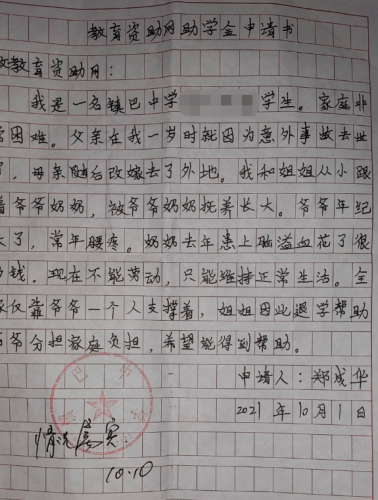 教育资助网助学金申请书
教教育资助网：
我是一名镇巴中学 学生。家庭非
常困难。父亲在我一岁时就因为意外事故去世
了，母亲随后改嫁去了外地。我和姐姐从小跟
着爷爷奶奶，被爷爷奶奶抚养长大。爷爷年纪
大了，常年腰疼。奶奶去年患上脑溢血花了很
多钱。现在不能劳动，只能维持正常生活。全
家仅靠爷爷一个人支撑着，姐姐因此退学帮助
爷爷分担家庭负担，希望能得到帮助。
申请人：郑成华
2021年10月1日
情况属实
10.10